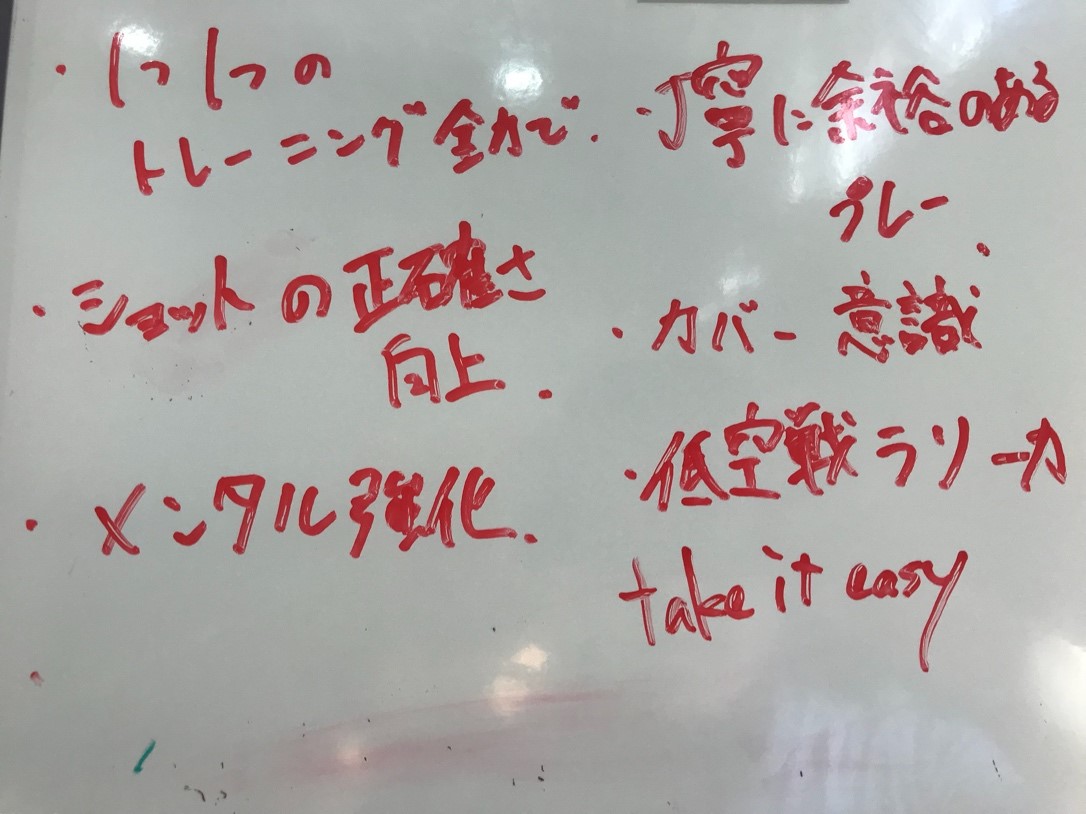 ・1つ1つの
トレーニング全力で.
・ショットの正確さ
向上.
・メンタル強化.
・
・丁寧に余裕のある
プレー.
・カバー意識
・低空戦ラリー力
take it easy